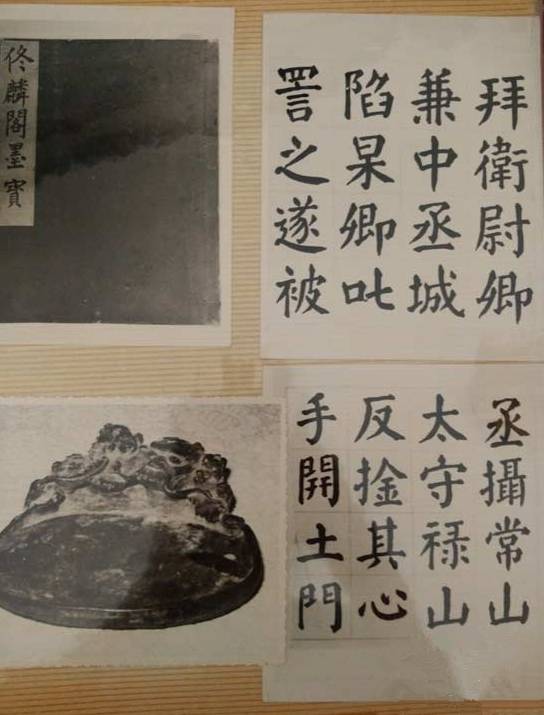 佟麟閣墨寶
拜衛尉卿
兼中丞城
陷杲卿叱
詈之遂被
丞攝常山
太守禄山
反捦其心
手開土門